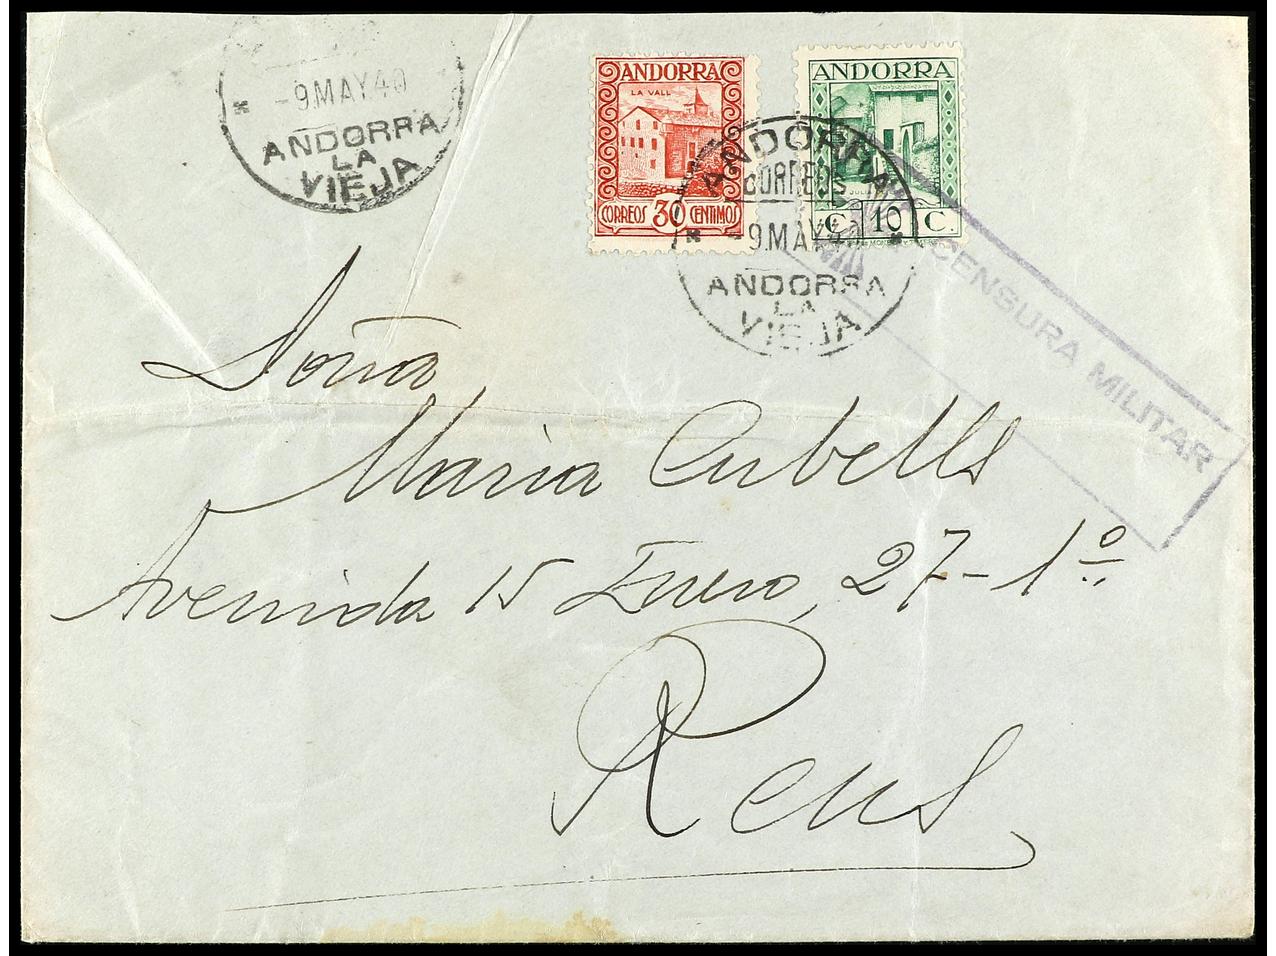 -9 MAY 40
ANDORRA
LA
VIEJA
ANDORRA
LA VALL
CORREOS 30 CENTIMOS
ANDORRA
C. 10 C.
ANDORRA
CORREOS
-9 MAY 40
ANDORRA
LA
VIEJA
CENSURA MILITAR
Doña
Maria Cubells
Avenida 15 Enero, 27-1º
Reus